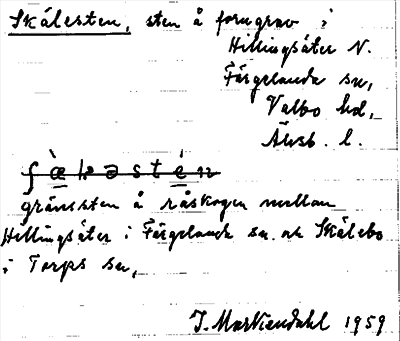 Skälesten, sten å forngrav i
Hillingsäter N.
Färgelanda sn,
Valbo hd,
Älvsb. l.
gränssten å råskogen mellan
Hillingsäter i Färgelanda sn. och Skälebo
i Torps sn,
J. Markendahl 1959